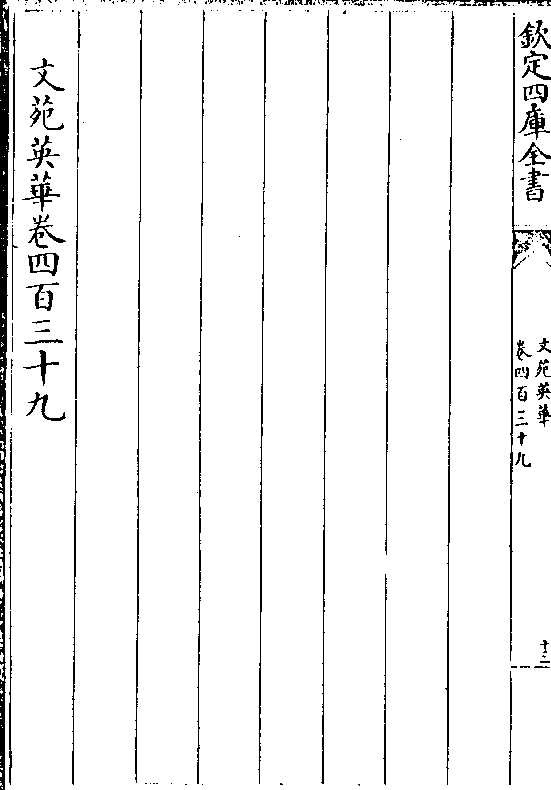 欽定四庫全書
文苑英華
卷四百三十九
十二
文苑英華卷四百三十九